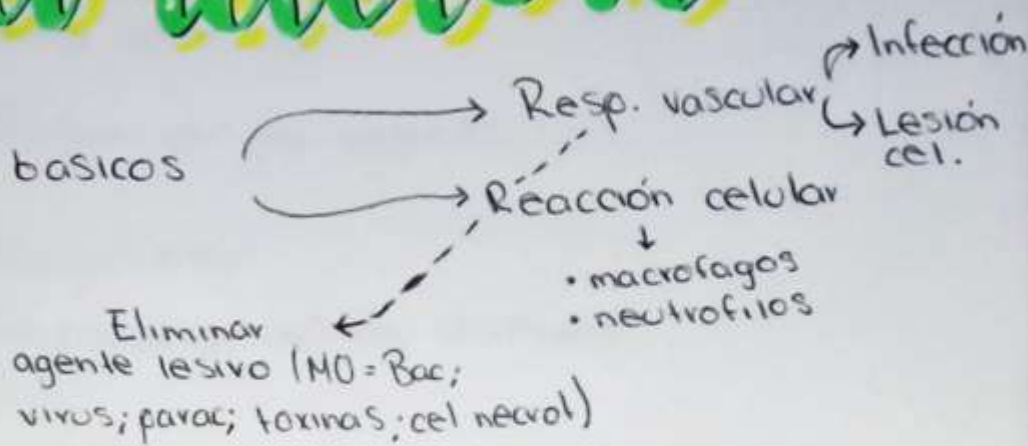 Resp. vascular
Infección
Lesión
cel.
basicos
Reacción celular
• macrofagos
• neutrofilos
Eliminar
agente lesivo (MO = Bac;
virus; parac; toxinas; cel necrot)